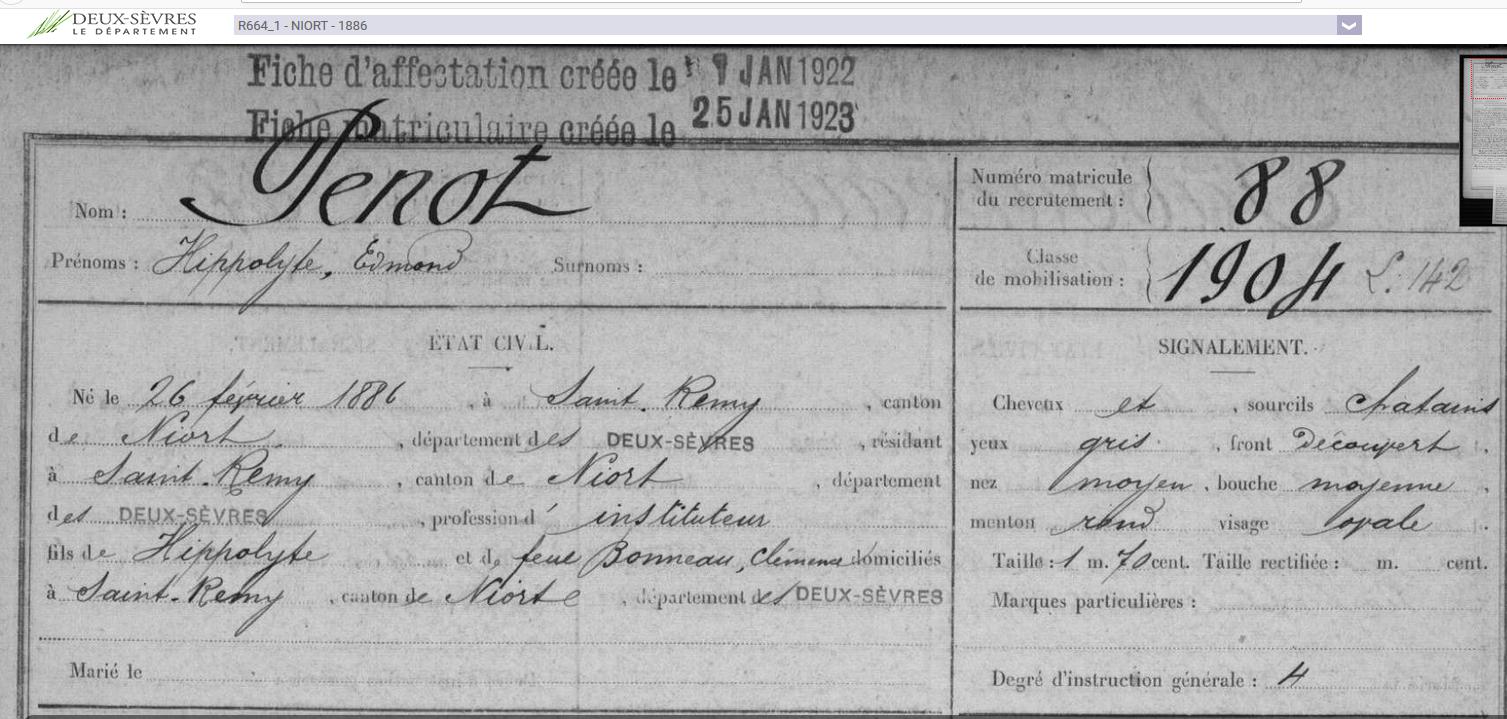 DEUX-SÈVRES
LE DÉPARTEMENT
R664_1 - NIORT - 1886
Fiche d'affectation créée le 7 JAN 1922
Fiche matriculaire créée le 25 JAN 1923
Nom : Penot
Prénoms : Hippolyte, Edmond Surnoms :
Numéro matricule
du recrutement : 88
Classe
de mobilisation : 1904 L. 142
ÉTAT CIVIL.
Né le 26 février 1886, à Saint-Remy, canton
de Niort, département des DEUX-SÈVRES, résidant
à Saint-Remy, canton de Niort, département
des DEUX-SÈVRES, profession d'instituteur
fils de Hippolyte et de feue Bonneau, Clémence domiciliés
à Saint-Remy, canton de Niort, département des DEUX-SÈVRES
Marié le
SIGNALEMENT.
Cheveux et, sourcils chatains
yeux gris, front Découvert,
nez moyen, bouche moyenne,
menton rond visage ovale.
Taille : 1 m. 70 cent. Taille rectifiée : m. cent.
Marques particulières :
Degré d'instruction générale : 4